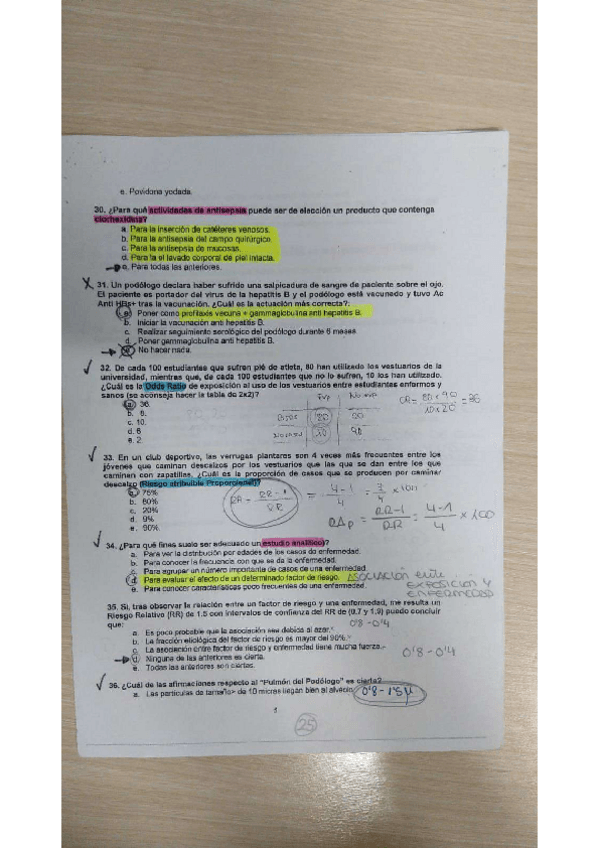 e. Povidona yodada.
30. ¿Para qué actividades de antisepsia puede ser de elección un producto que contenga
clorhexidina?
a. Para la inserción de catéteres venosos.
b. Para la antisepsia del campo quirúrgico.
c. Para la antisepsia de mucosas.
d. Para la el lavado corporal de piel intacta.
e. Para todas las anteriores.
X 31. Un podólogo declara haber sufrido una salpicadura de sangre de paciente sobre el ojo.
El paciente es portador del virus de la hepatitis B y el podólogo está vacunado y tuvo Ac
Anti HBs+ tras la vacunación. ¿Cuál es la actuación más correcta?:
a. Poner como profilaxis vacuna + gammaglobulina anti hepatitis B.
b. Iniciar la vacunación anti hepatitis B.
c. Realizar seguimiento serológico del podólogo durante 6 meses.
d. Poner gammaglobulina anti hepatitis B.
No hacer nada.
32. De cada 100 estudiantes que sufren pié de atleta, 80 han utilizado los vestuarios de la
universidad, mientras que, de cada 100 estudiantes que no lo sufren, 10 los han utilizado.
¿Cuál es la Odds Ratio de exposición al uso de los vestuarios entre estudiantes enfermos y
sanos (se aconseja hacer la tabla de 2x2)?
a. 36.
b. 8.
c. 10.
d. 6
e. 2
Exp No exp
80 20
10 90
OR = 80 x 90 / 10 x 20 = 36
33. En un club deportivo, las verrugas plantares son 4 veces más frecuentes entre los
jóvenes que caminan descalzos por los vestuarios que las que se dan entre los que
caminan con zapatillas. ¿Cuál es la proporción de casos que se producen por caminar
descalzo (Riesgo atribuible Proporcional)?
a. 75%
b. 80%
c. 20%
d. 9%
e. 90%
RA = RR-1 / RR
= 4-1 / 4 = 3 / 4 x 100
RAp = RR-1 / RR = 4-1 / 4 x 100
34. ¿Para qué fines suele ser adecuado un estudio analítico)?
a. Para ver la distribución por edades de los casos de enfermedad.
b. Para conocer la frecuencia con que se da la enfermedad.
c. Para agrupar un número importante de casos de una enfermedad.
d. Para evaluar el efecto de un determinado factor de riesgo. ASOCIACIÓN entre ...
e. Para conocer características poco frecuentes de una enfermedad.
EXPOSICION Y
ENFERMEDAD
35. Si, tras observar la relación entre un factor de riesgo y una enfermedad, me resulta un
Riesgo Relativo (RR) de 1.5 con intervalos de confianza del RR de (0.7 y 1.9) puedo concluir
que:
0'8 - 0'4
a. Es poco probable que la asociación sea debida al azar.
b. La fracción etiológica del factor de riesgo es mayor del 90%.
c. La asociación entre factor de riesgo y enfermedad tiene mucha fuerza.
d. Ninguna de las anteriores es cierta.
e. Todas las anteriores son ciertas.
0'8 - 0'4
36. ¿Cuál de las afirmaciones respecto al "Pulmón del Podólogo" es cierta?
a. Las partículas de tamaño> de 10 micras llegan bien al alveolo. 0'8 - 1'5 μ
25